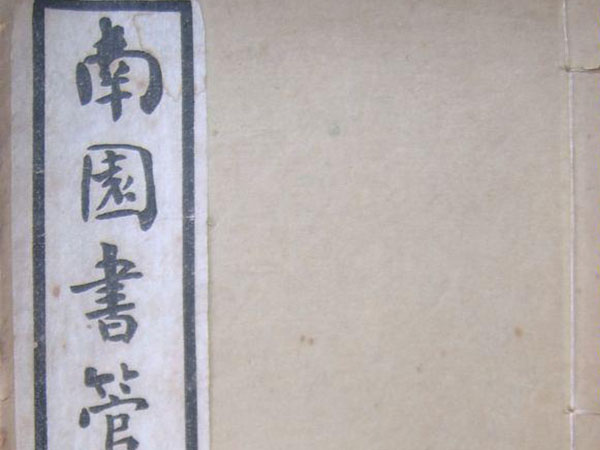 南園書管